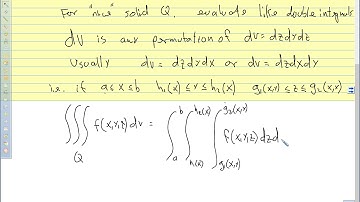 For "nice" solid Q, evaluate like double integrals
dV is any permutation of dv = dzdydz
Usually dv = dzdydx or dv = dzdxdy
i.e. if a ≤ x ≤ b h₁(x) ≤ y ≤ h₂(x) g₁(x,y) ≤ z ≤ g₂(x,y)
∭_Q f(x,y,z) dv = ∫_a^b ∫_{h₁(x)}^{h₂(x)} ∫_{g₁(x,y)}^{g₂(x,y)} f(x,y,z) dz d